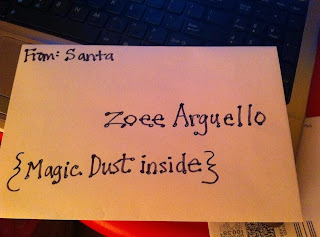 From: Santa
Zoee Arguello
{Magic Dust inside}